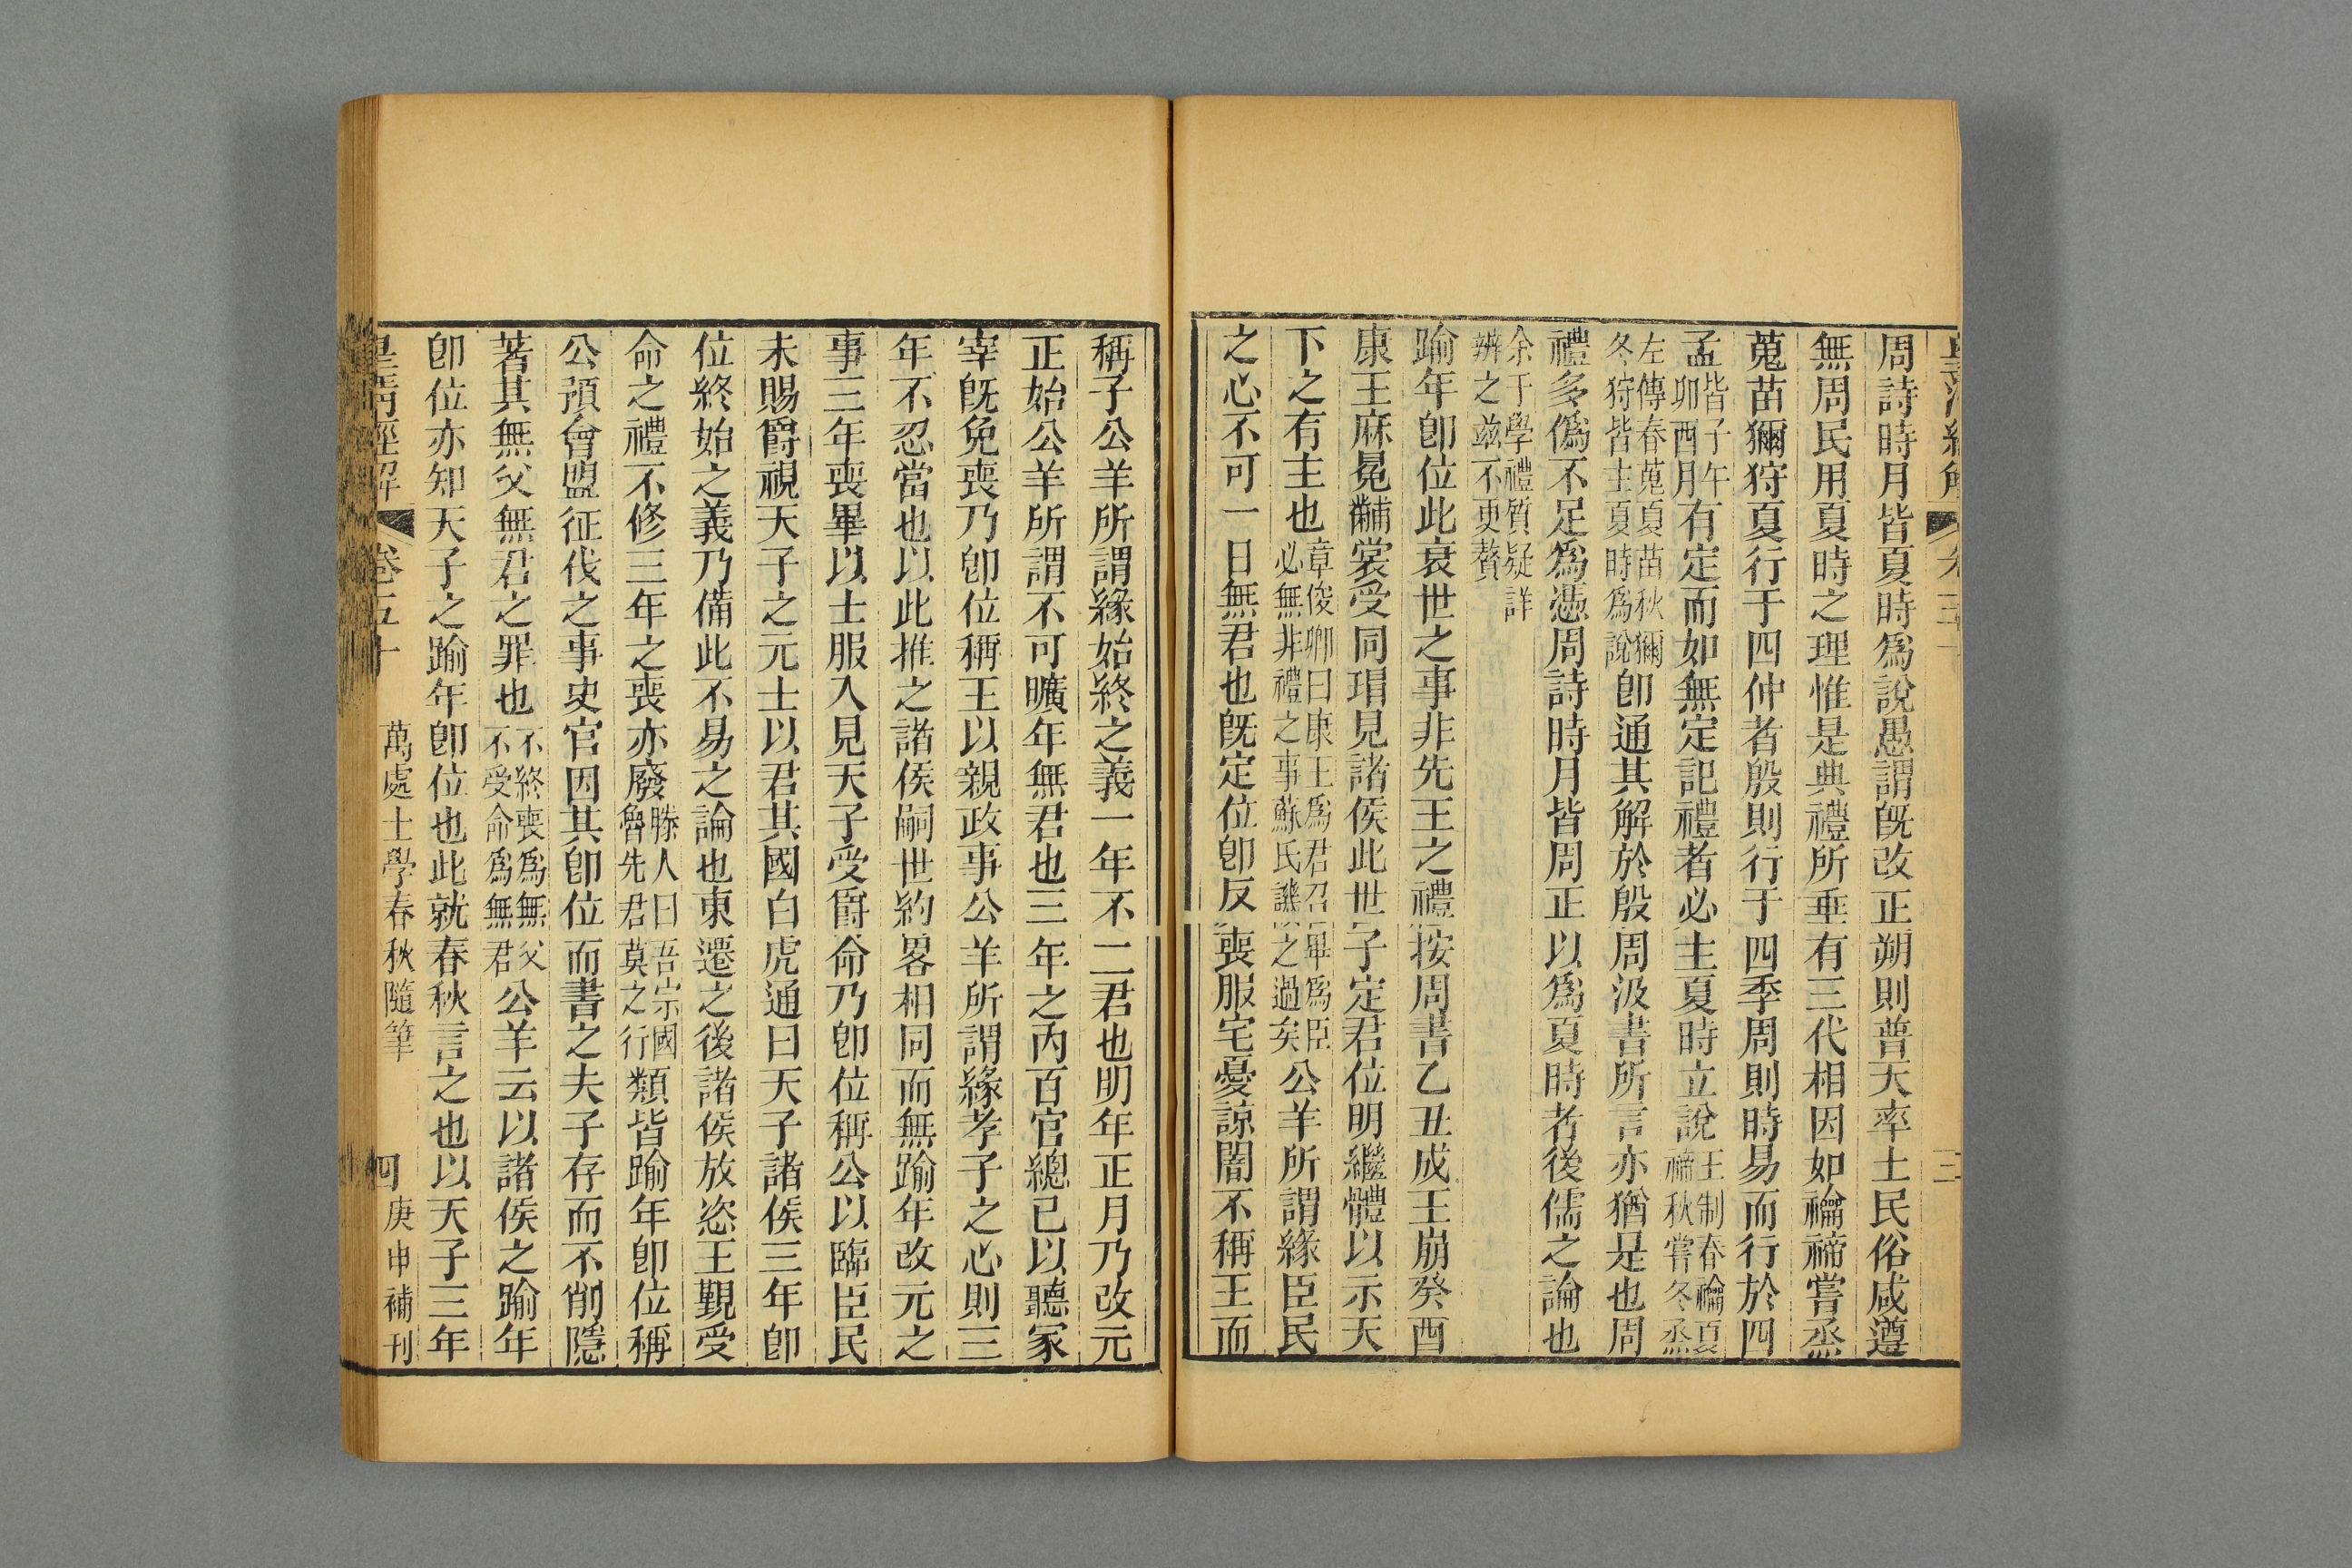 周詩時月皆夏時爲說愚謂旣改正朔則普天率土民俗咸遵
無周民用夏時之理惟是典禮所垂有三代相因如禴禘嘗烝
蒐苗獮狩夏行于四仲者殷則行于四季周則時易而行於四
孟皆子午卯酉月有定而如無定記禮者必主夏時立說王制春禴夏禘秋嘗冬烝
左傳春蒐夏苗秋獮冬狩皆主夏時爲說卽通其解於殷周汲書所言亦猶是也周
禮多僞不足爲憑周詩時月皆周正以爲夏時者後儒之論也
余于學禮質疑詳辨之兹不更贅
踰年卽位此衰世之事非先王之禮按周書乙丑成王崩癸酉
康王麻冕黼裳受同瑁見諸侯此世子定君位明繼體以示天
下之有主也章俊卿曰康王爲君召畢爲臣必無非禮之事蘇氏譏之過矣公羊所謂緣臣民
之心不可一日無君也旣定位卽反喪服宅憂諒闇不稱王而
稱子公羊所謂緣始終之義一年不二君也明年正月乃改元
正始公羊所謂不可曠年無君也三年之內百官總已以聽冢
宰旣免喪乃卽位稱王以親政事公羊所謂緣孝子之心則三
年不忍當也以此推之諸侯嗣世約畧相同而無踰年改元之
事三年喪畢以士服入見天子受爵命乃卽位稱公以臨臣民
未賜爵視天子之元士以君其國白虎通曰天子諸侯三年卽
位終始之義乃備此不易之論也東遷之後諸侯放恣王覲受
命之禮不修三年之喪亦廢滕人曰吾宗國魯先君莫之行類皆踰年卽位稱
公預會盟征伐之事史官因其卽位而書之夫子存而不削隱
著其無父無君之罪也不終喪爲無父不受命爲無君公羊云以諸侯之踰年
卽位亦知天子之踰年卽位也此就春秋言之也以天子三年
皇清經解 卷五十 萬處士學春秋隨筆 四 庚申補刊